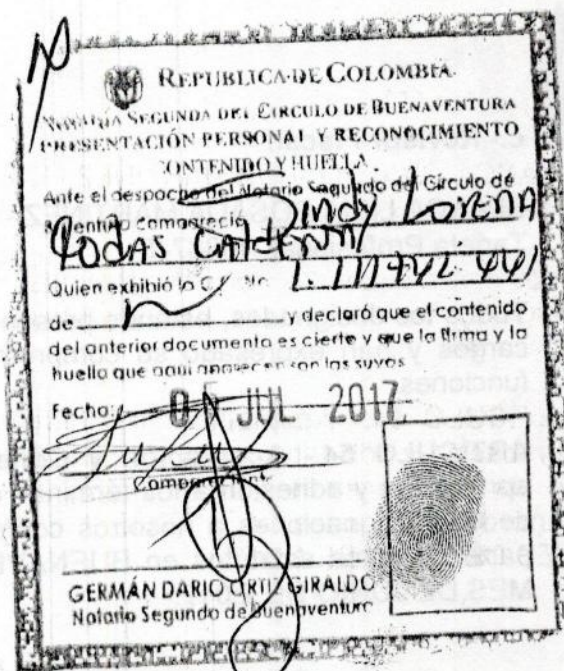 REPUBLICA DE COLOMBIA
NOTARIA SEGUNDA DEL CIRCULO DE BUENAVENTURA
PRESENTACIÓN PERSONAL Y RECONOCIMIENTO
CONTENIDO Y HUELLA
Ante el despacho del Notario Segundo del Círculo de
Buenaventura Compareció Sindy LORENA
RODAS CALDERON
Quien exhibió la C.C. No.
de y declaró que el contenido
del anterior documento es cierto y que la firma y la
huella que aquí aparecen son las suyas
Fecha: JUL 2017
Compareciente
GERMÁN DARIO ORTIZ GIRALDO
Notario Segundo de Buenaventura